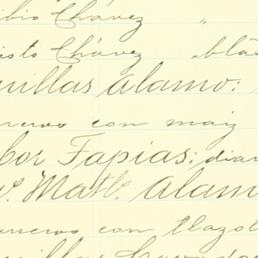 ibio Chávez "
isto Chávez blan
uillas Alamo:
rreros con maiz
bor Tapias: diar
Math. Alam
arreros con tlazol